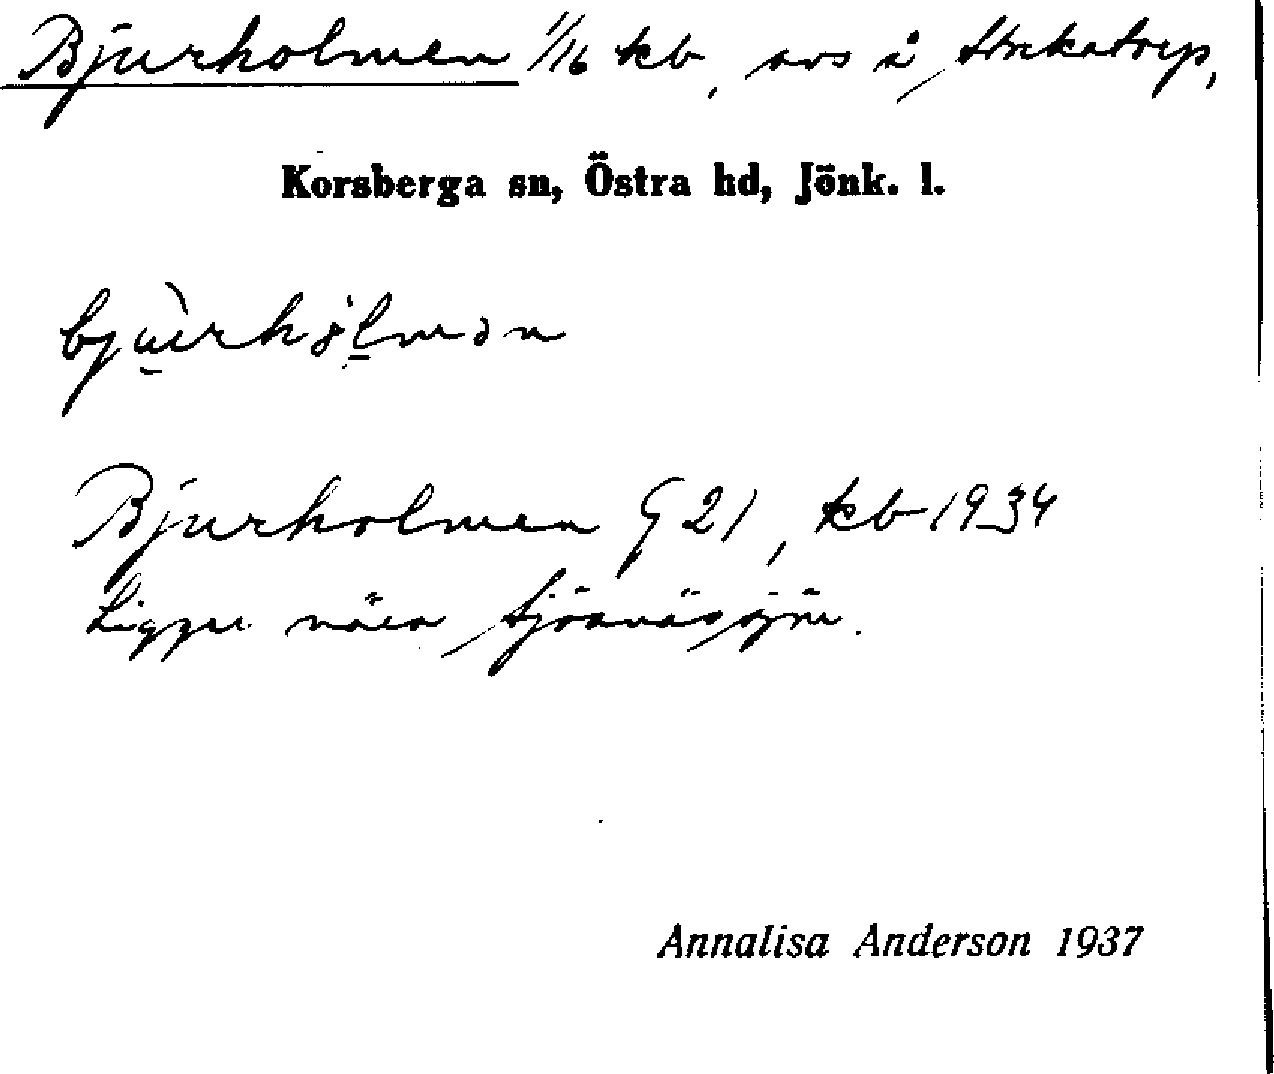 Bjurholmen 1/16 kb, avs å Stockatorp,
Korsberga sn, Östra hd, Jönk. l.
bjùrhólmən
Bjurholmen G 21, kb 1934
Ligger nära
Annalisa Anderson 1937